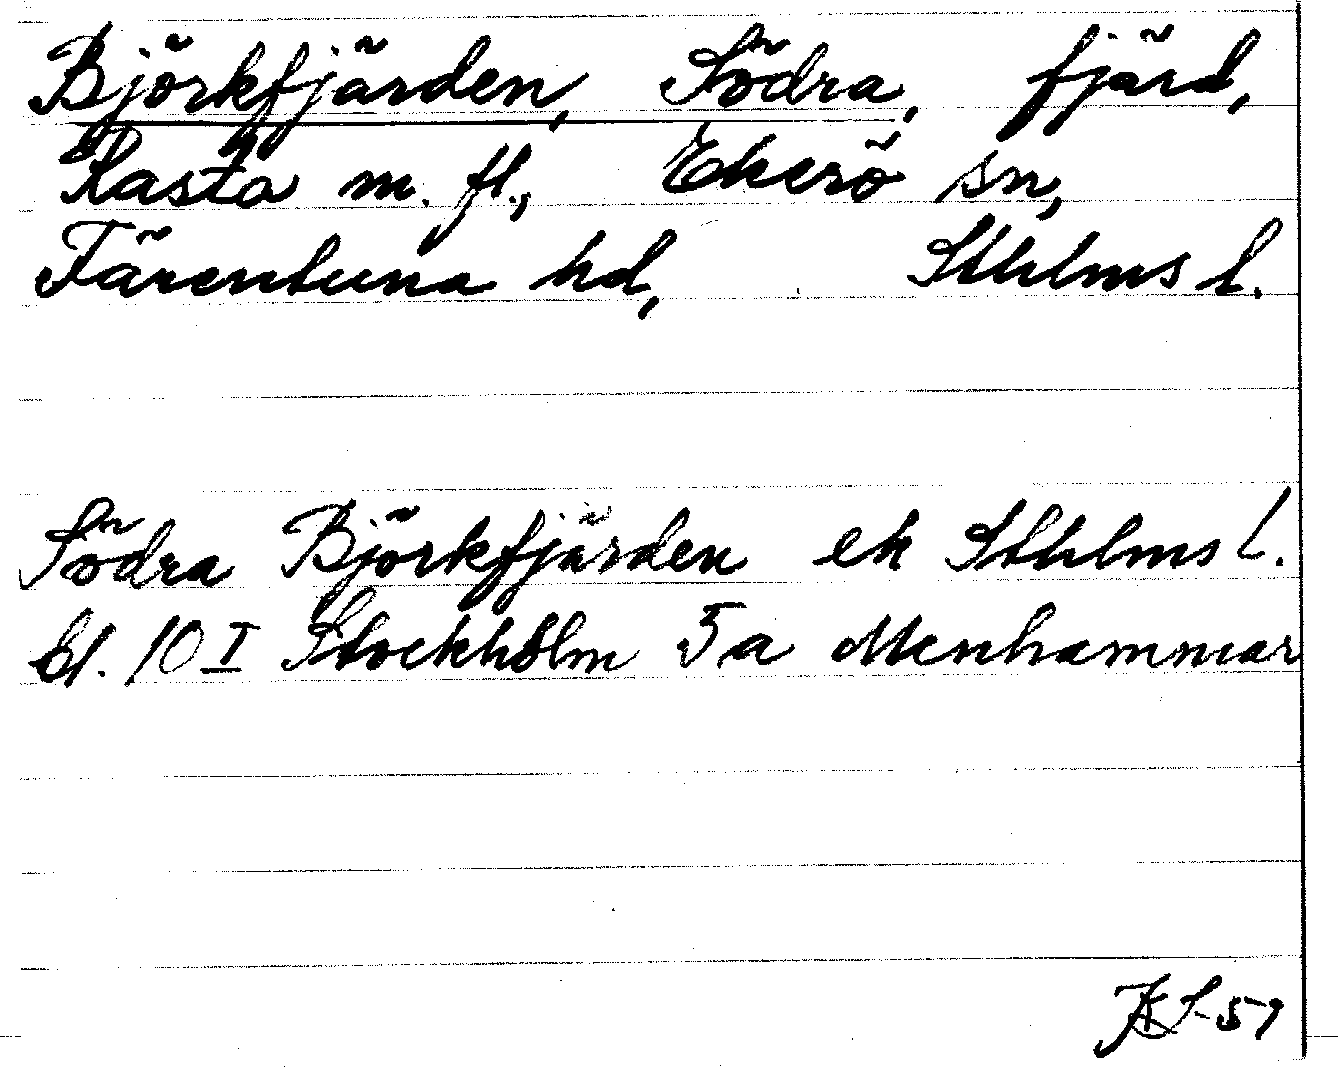 Björkfjärden, Södra, fjärd,
Kasta m. fl., Ekerö sn,
Färentuna hd, Sthlms l.
Södra Björkfjärden ek Sthlms l.
bl. 10 I Stockholm 5a Menhammar